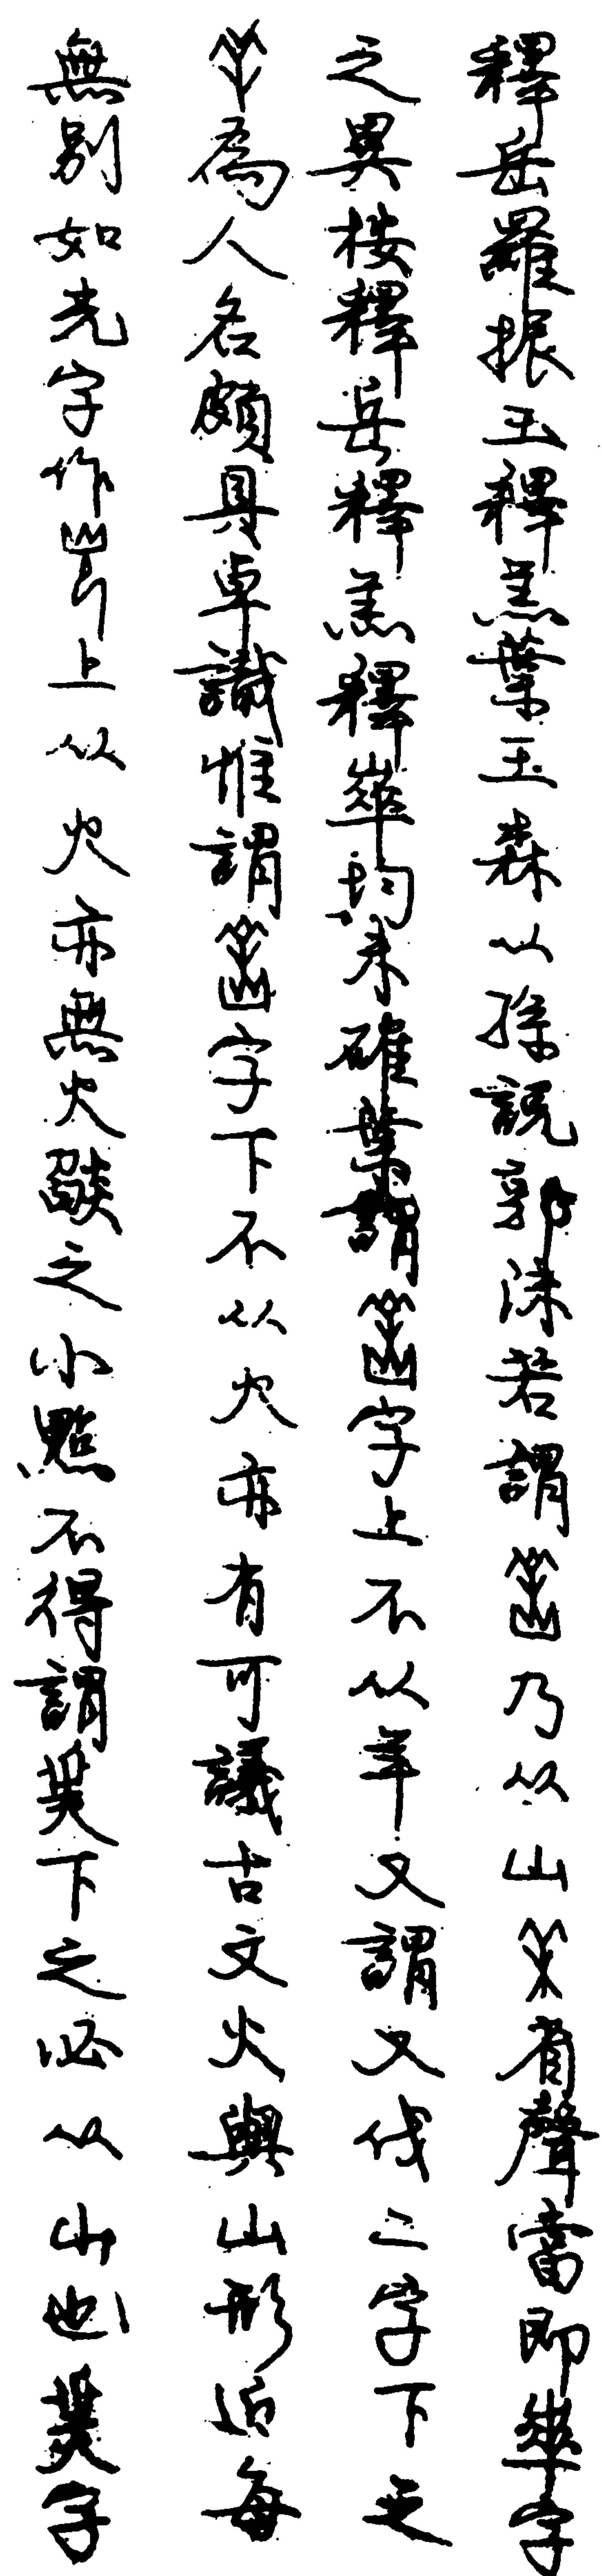 釋岳羅振玉釋羔葉玉森以孫說郭沫若謂乃从山省聲當即華字
之異按釋岳釋羔釋華均未確葉謂字上不从羊又謂又伐二字下之
為人名頗具卓識惟謂字下不从火亦有可議古文火與山形近每
無別如光字作上从火亦無火燄之小點不得謂下之必从山也字